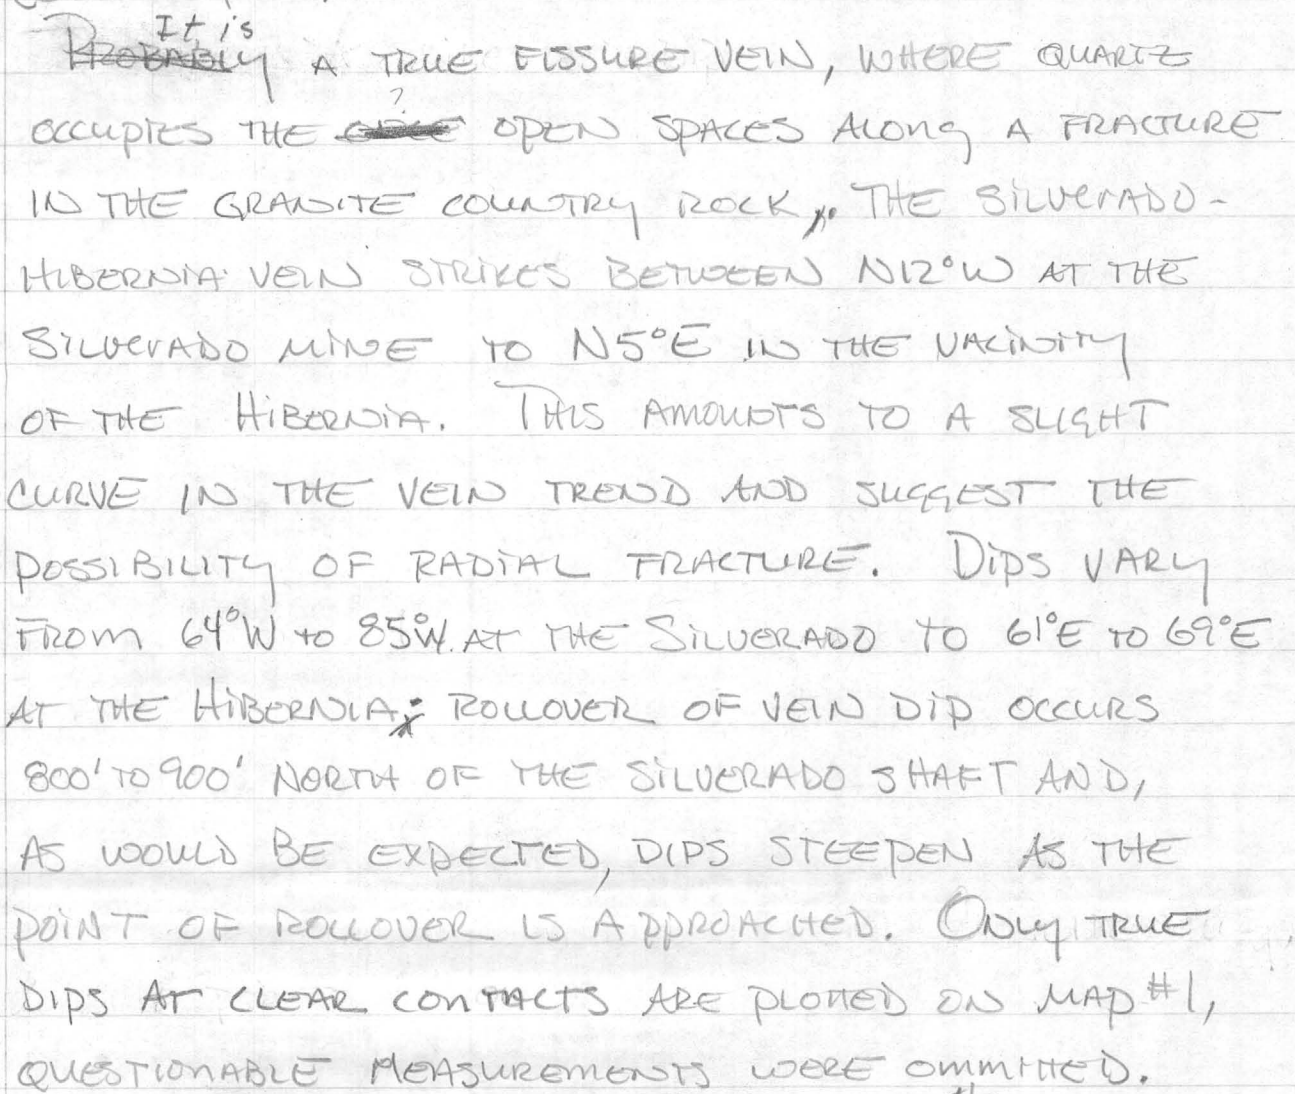 It is
Probably A TRUE FISSURE VEIN, WHERE QUARTZ
?
OCCUPIES THE OPEN SPACES ALONG A FRACTURE
IN THE GRANITE COUNTRY ROCK. THE SILVERADO-
HIBERNIA VEIN STRIKES BETWEEN N12°W AT THE
SILVERADO MINE TO N5°E IN THE VACINITY
OF THE HIBERNIA. THIS AMOUNTS TO A SLIGHT
CURVE IN THE VEIN TREND AND SUGGEST THE
POSSIBILITY OF RADIAL FRACTURE. DIPS VARY
FROM 64°W to 85°W. AT THE SILVERADO TO 61°E TO 69°E
AT THE HIBERNIA; ROLLOVER OF VEIN DIP OCCURS
800' TO 900' NORTH OF THE SILVERADO SHAFT AND,
AS WOULD BE EXPECTED, DIPS STEEPEN AS THE
POINT OF ROLLOVER IS APPROACHED. ONLY TRUE
DIPS AT CLEAR CONTACTS ARE PLOTTED ON MAP #1,
QUESTIONABLE MEASUREMENTS WERE OMMITTED.